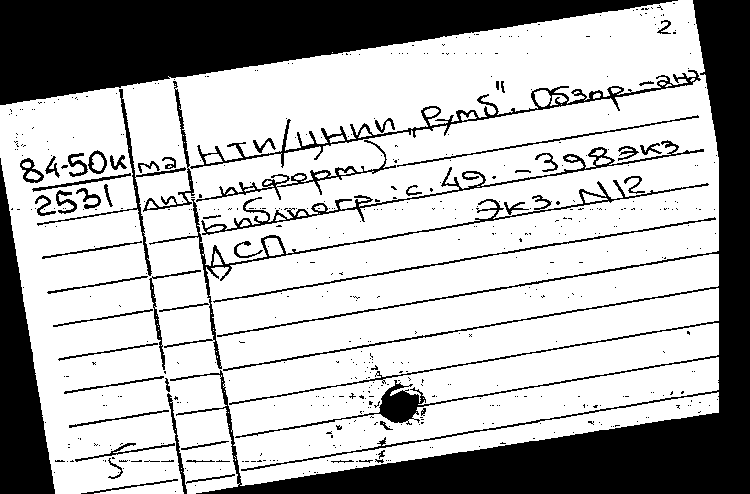 2.
84-50к та НТИ/ЦНИИ „Румб". Обзор.-ана-
2531 лит. информ.).
Библиогр.: с. 49. - 398 экз.
ДСП. Экз. N12.
5